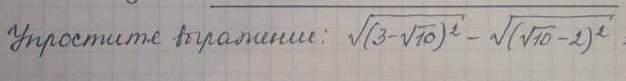 Упростите выражение: √(3-√10)² - √(√10-2)²